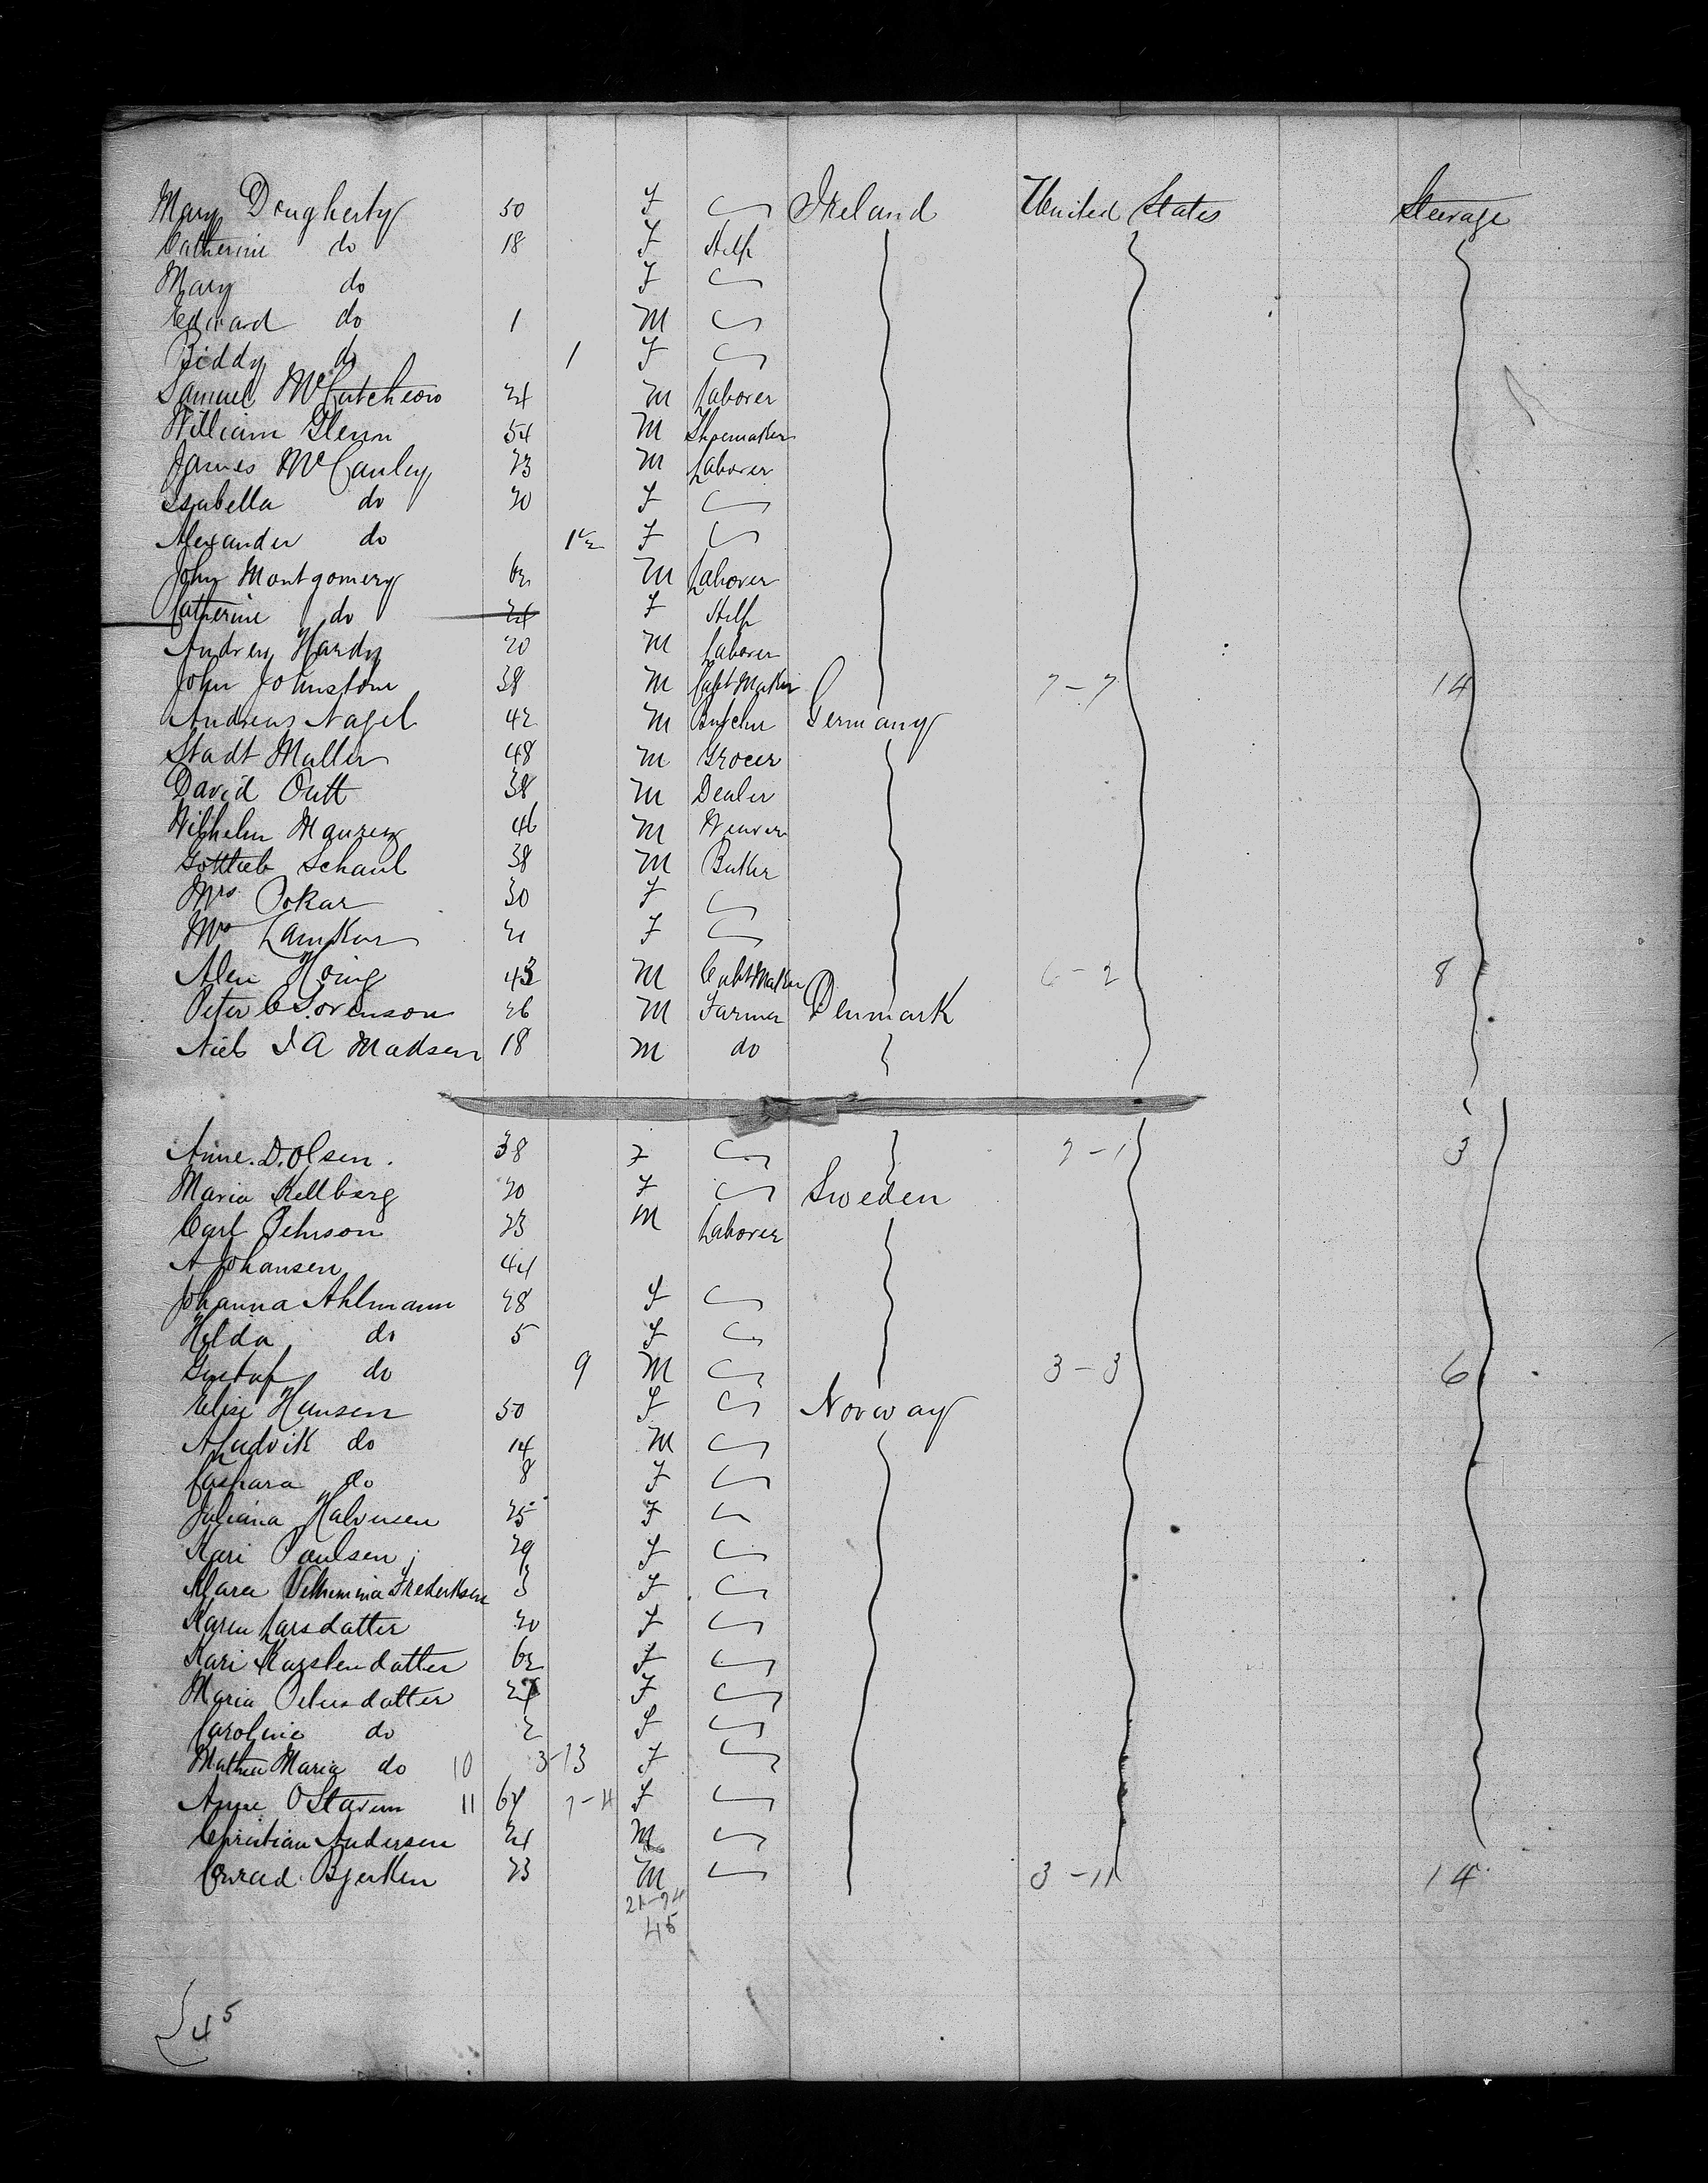 Mary Dougherty 50 F Ireland United States Steerage
Catherine do 18 F Help
Mary do F
Edward do 1 M
Biddy do 1 F
Samuel McCutcheon 24 M Laborer
William Glenn 54 M Shoemaker
James McCauley 23 M Laborer
Isabella do 20 F
Alexander do F
John Montgomery 62 M Laborer
Catherine do 24 F Help
Andrew Hardy 20 M Laborer
John Johnston 38 M CabtMaker 7-7 14
Andreas Nagel 42 M Butcher Germany
Stadt Muller 48 M Grocer
David Outt 38 M Dealer
Wilhelm Maurez 46 M Weaver
Gottlieb Schaul 38 M
Mrs Pokar 30 F
Mrs 21 F
Alen Hoing 43 M CabtMaker 6-2 8
Peter C Sorenson 26 M Farmer Denmark
Niels J A Madsen 18 M do
Anne. D. Olsen. 38 F 2-1 3
Maria Kellberg 20 F Sweden
Carl Pehrson 23 M Laborer
A Johansen 44
Johanna Ahlmann 28 F
Hilda do 5 F
Gustaf do 9 M 3-3 6
Elise Hansen 50 F Norway
A Ludvik do 14 M
Caspara do 8 F
Juliana Halvensen 25 F
Kari Paulsen 29 F
Klara Vilhimina Frederiksen 3 F
Karen Larsdatter 20 F
Kari Karstendatter 62 F
Maria Petersdatter F
Caroline do 2 F
Mathea Maria do 10 3-13 F
Anne O 11 64 7-4 F
Christian Andersen 24 M
Conrad Bjerken 23 M 3-11 14
21-24
45
45